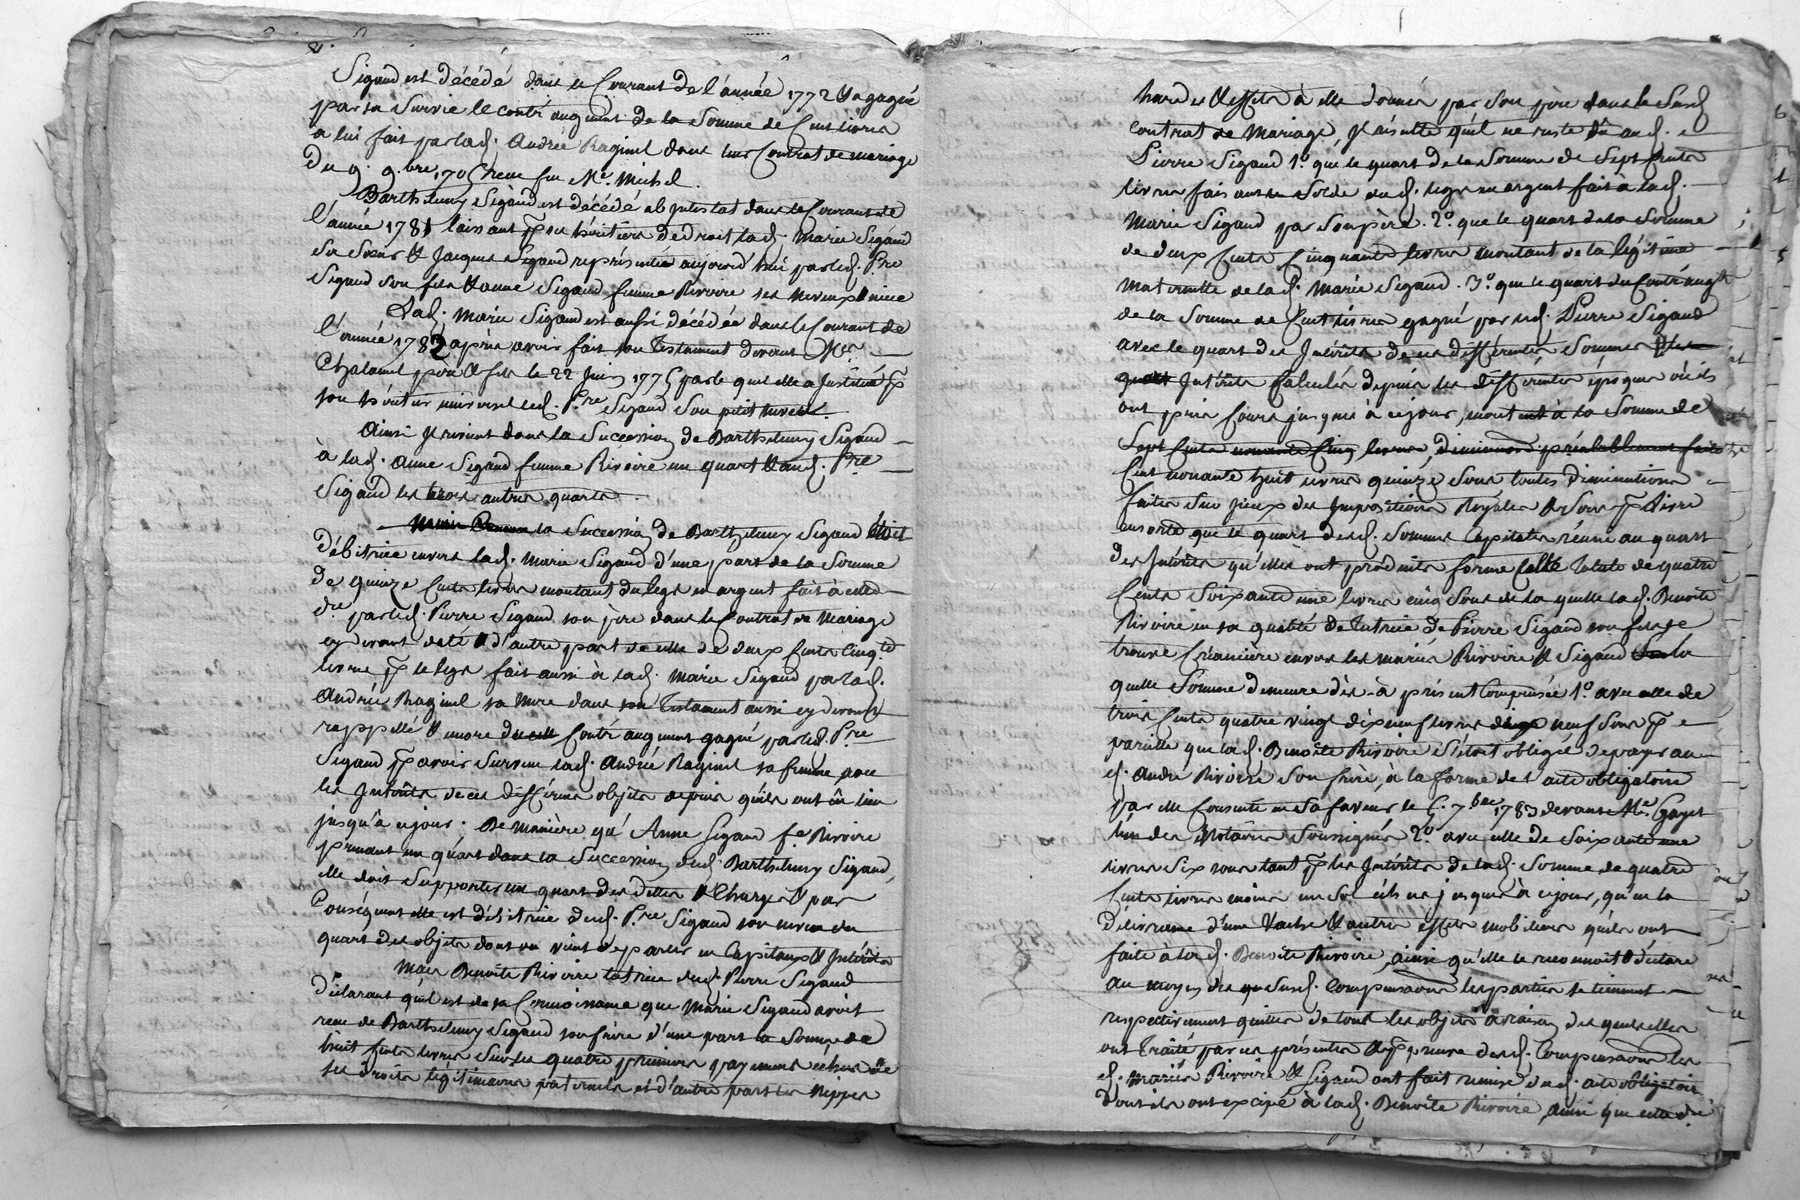 Sigaud est décédé dans le Courant de l'année 1772 & a gagné
par sa Survie le contr'augment de la Somme de Cent livres
a lui fait par lad. Andrée Raginel dans leur Contrat de mariage
Du 9. 9.bre 170 recu par Me. Michel.
Barthelemy Sigaud est décédé ab intestat dans le Courant de
l'année 1781 laissant pr ses héritiers de droit lad. Marie Sigaud
sa Sœur & Jacques Sigaud représenté aujourd'hui par led. Pre
Sigaud son fils & anne Sigaud femme Rivoire ses neveux & niece
Lad. Marie Sigaud est aussi décédée dans le Courant de
l'année 1782 après avoir fait son Testament devant Me.
le 22 Juin 1775 par le quel elle a Institué pr
son héritier universel led. Pre Sigaud son petit neveu.
Ainsi il revient dans la Succession de Barthelemy Sigaud
à lad. Anne Sigaud femme Rivoire un quart & aud. Pre
Sigaud les trois autres quarts.
la Succession de Barthelemy Sigaud étoit
Débitrice envers lad. Marie Sigaud d'une part de la Somme
de quinze Cents livres montant du legs en argent fait à cette
dre par led. Pierre Sigaud son père dans le Contrat de Mariage
cy devant daté & d'autre part de celle de deux Cents Cinqte
livres pr le legs fait aussi à lad. Marie Sigaud par lad.
Andrée Raginel sa Mere dans son Testament aussi cy devant
rappellé & encore du Contr'augment gagné par led. Pre
Sigaud pr avoir Survecu lad. Andrée Raginel sa femme avec
les Intérêts de ces différens objets depuis qu'ils ont eu lieu
jusqu'à ce jour. De Manière qu'Anne Sigaud fe. Rivoire
prenant un quart dans la Succession dud. Barthelemy Sigaud,
elle doit Supporter un quart des dettes & Charges & par
Conséquent elle est débitrice dud. Pre Sigaud son neveu du
quart des objets dont on vient de parler en Capitaux & Intérêts
Mais Benoîte Rivoire tutrice dud. Pierre Sigaud
déclarant qu'il est de sa Connoissance que Marie Sigaud avoit
recu de Barthelemy Sigaud son frère d'une part la Somme de
huit Cents livres Sur les quatre premiers payemens échus de
ses droits légitimaires paternels et d'autre part les nippes
hardes & effets à elle donnés par son père dans le Susd.
contrat de Mariage, il résulte qu'il ne reste dû aud.
Pierre Sigaud 1.° que le quart de la Somme de Sept Cents
livres faisant le Solde dud. legs en argent fait à lad.
Marie Sigaud par son père. 2.° que le quart de la Somme
de deux Cents Cinquante livres montant de la légitime
maternelle de lad. Marie Sigaud. 3.° que le quart du Contr'augt
de la Somme de Cent livres gagné par led. Pierre Sigaud
avec le quart des Intérêts de ces différentes Sommes
Intérêts Calculés depuis les différentes époques où ils
ont pris Cours jusques à ce jour, montent à la Somme de
Sept Cents nonante Cinq livres, diminution préalablement faite
Cent nonante huit livres quinze Sous toutes Diminutions
faites Sur Jceux des Impositions Royales & Sous pr Livre
ensorte que le quart desd. Sommes Capitales réuni au quart
des Intérêts qu'elles ont produits forme Celle totale de quatre
Cents Soixante une livres cinq Sous de la quelle lad. Benoîte
Rivoire en sa qualité de Tutrice de Pierre Sigaud son fils se
trouve Créancière envers les mariés Rivoire & Sigaud la
quelle Somme demeure dès-à présent Compensée 1.° avec celle de
trois Cents quatre vingt dix neuf livres dix neuf Sous pr
pareille que lad. Benoîte Rivoire S'étoit obligée de payer au
d. André Rivoire son frère, à la forme de l'acte obligatoire
par elle Consenti en Sa faveur le 5. 7.bre 1783 devant Me. Gayet
l'un des Notaires Soussignés 2.° avec celle de Soixante une
livres Six sous tant pr les Intérêts de lad. Somme de quatre
Cents livres moins un Sol échus jusques à ce jour, qu'en la
Délivrance d'une Vache & autres effets mobiliers qu'ils ont
faite à lad. Benoîte Rivoire, ainsi qu'elle le reconnoit & déclare
au moyen des quelles Susd. Compensations les parties se tiennent
respectivement quittes de tous les objets à raison des quels elles
ont Traité par ces présentes & pr preuve desd. Compensations les
d. Mariés Rivoire & Sigaud ont fait remise dud. acte obligatoire
Dont ils ont excipé à lad. Benoîte Rivoire, ainsi que cette dre.